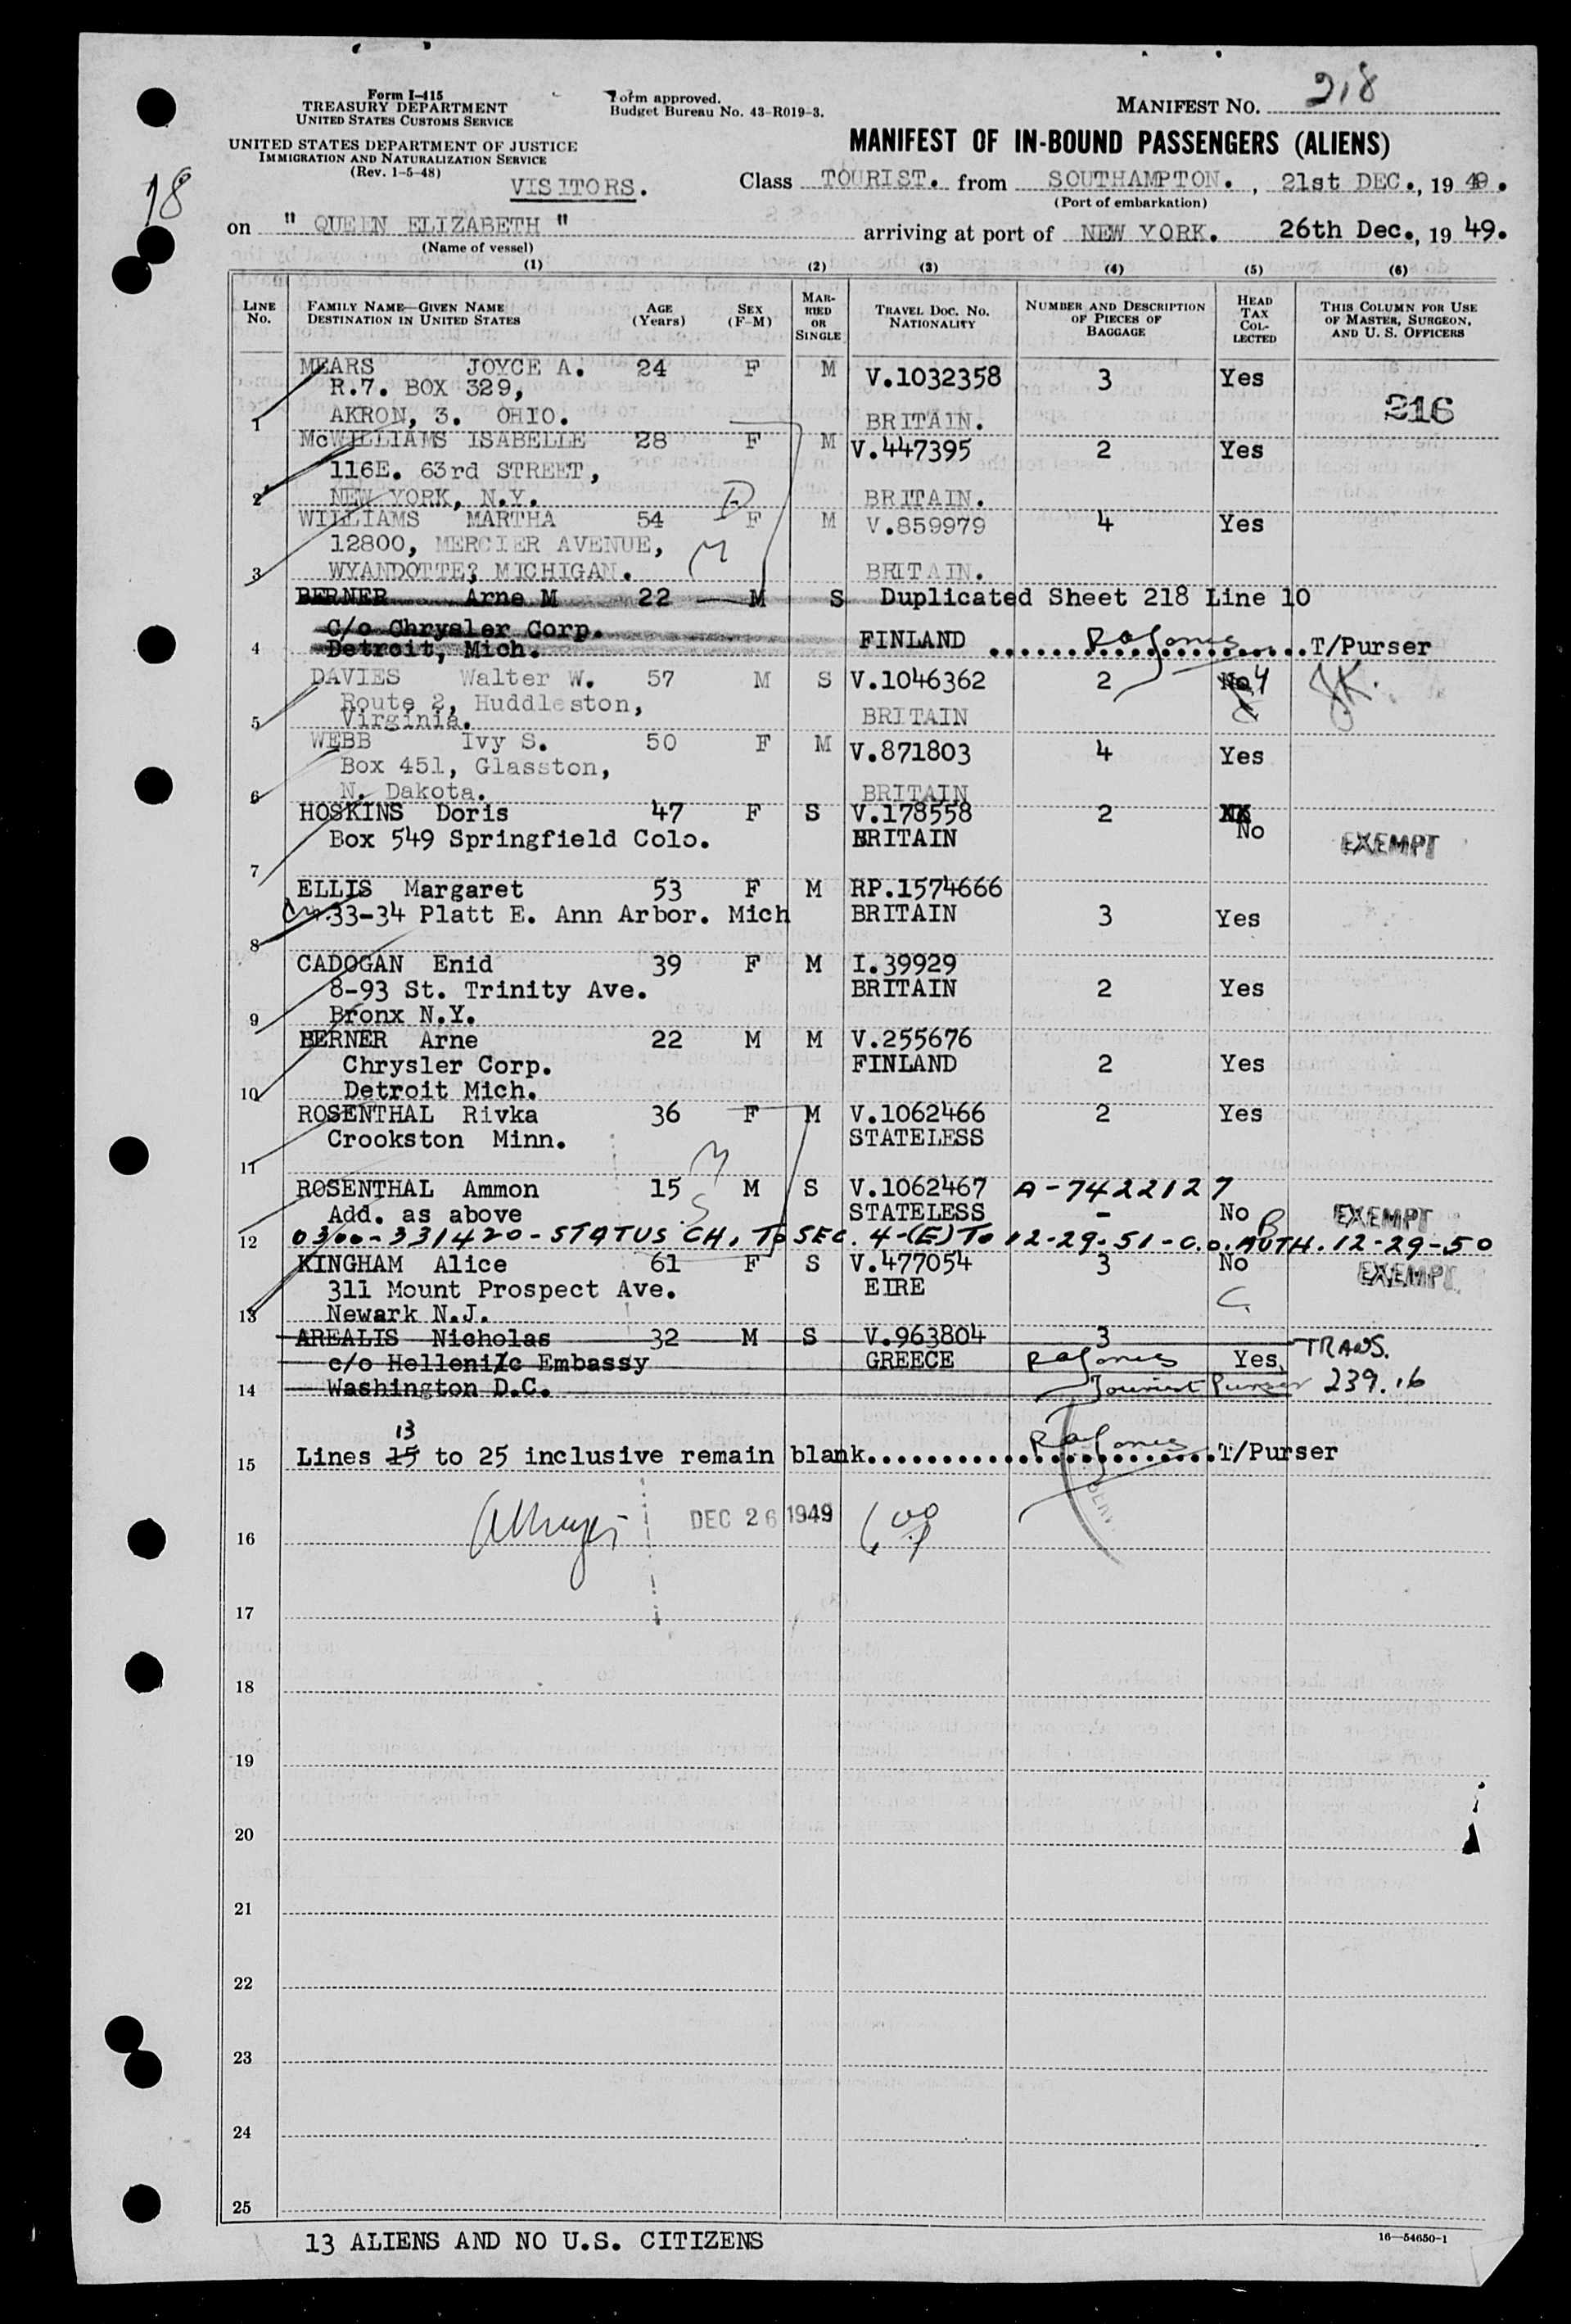 Form I-415
TREASURY DEPARTMENT
UNITED STATES CUSTOMS SERVICE
UNITED STATES DEPARTMENT OF JUSTICE
IMMIGRATION AND NATURALIZATION SERVICE
(Rev. 1-5-48)
Form approved.
Budget Bureau No. 43-R019-3.
MANIFEST No. 218
MANIFEST OF IN-BOUND PASSENGERS (ALIENS)
18
VISITORS.
Class TOURIST. from SOUTHAMPTON. , 21st DEC., 19 49.
(Port of embarkation)
on " QUEEN ELIZABETH " arriving at port of NEW YORK. 26th Dec., 19 49.
(Name of vessel)
(1) (2) (3) (4) (5) (6)
LINE No. FAMILY NAME—GIVEN NAME DESTINATION IN UNITED STATES AGE (Years) SEX (F-M) MARRIED OR SINGLE TRAVEL DOC. NO. NATIONALITY NUMBER AND DESCRIPTION OF PIECES OF BAGGAGE HEAD TAX COLLECTED THIS COLUMN FOR USE OF MASTER, SURGEON, AND U. S. OFFICERS
MEARS JOYCE A. 24 F M V.1032358 3 Yes
R.7. BOX 329,
1 AKRON, 3. OHIO. BRITAIN. 216
McWILLIAMS ISABELLE 28 F M V.447395 2 Yes
116E. 63rd STREET,
2 NEW YORK, N.Y. BRITAIN.
WILLIAMS MARTHA 54 F M V.859979 4 Yes
12800, MERCIER AVENUE, M
3 WYANDOTTE? MICHIGAN. BRITAIN.
BERNER Arne M 22 M S Duplicated Sheet 218 Line 10
C/o Chrysler Corp.
4 Detroit, Mich. FINLAND ....................T/Purser
DAVIES Walter W. 57 M S V.1046362 2 No
Route 2, Huddleston,
5 Virginia. BRITAIN
WEBB Ivy S. 50 F M V.871803 4 Yes
Box 451, Glasston,
6 N. Dakota. BRITAIN
HOSKINS Doris 47 F S V.178558 2 No
Box 549 Springfield Colo. BRITAIN EXEMPT
7
ELLIS Margaret 53 F M RP.1574666
33-34 Platt E. Ann Arbor. Mich BRITAIN 3 Yes
8
CADOGAN Enid 39 F M I.39929
8-93 St. Trinity Ave. BRITAIN 2 Yes
9 Bronx N.Y.
BERNER Arne 22 M M V.255676
Chrysler Corp. FINLAND 2 Yes
10 Detroit Mich.
ROSENTHAL Rivka 36 F M V.1062466 2 Yes
Crookston Minn. STATELESS
11
ROSENTHAL Ammon 15 M S V.1062467 A-7422127
Add. as above STATELESS - No EXEMPT
12 0300-331420-STATUS CH. TO SEC. 4-(E) To 12-29-51-C.O. AUTH. 12-29-50
KINGHAM Alice 61 F S V.477054 3 No EXEMPT
311 Mount Prospect Ave. EIRE
13 Newark N.J.
AREALIS Nicholas 32 M S V.963804 3 TRANS.
c/o Hellenic Embassy GREECE Yes
14 Washington D.C. Tourist Purser 239.16
13
15 Lines 15 to 25 inclusive remain blank........................T/Purser
16 DEC 26 1949
17
18
19
20
21
22
23
24
25
13 ALIENS AND NO U.S. CITIZENS
16—54650-1